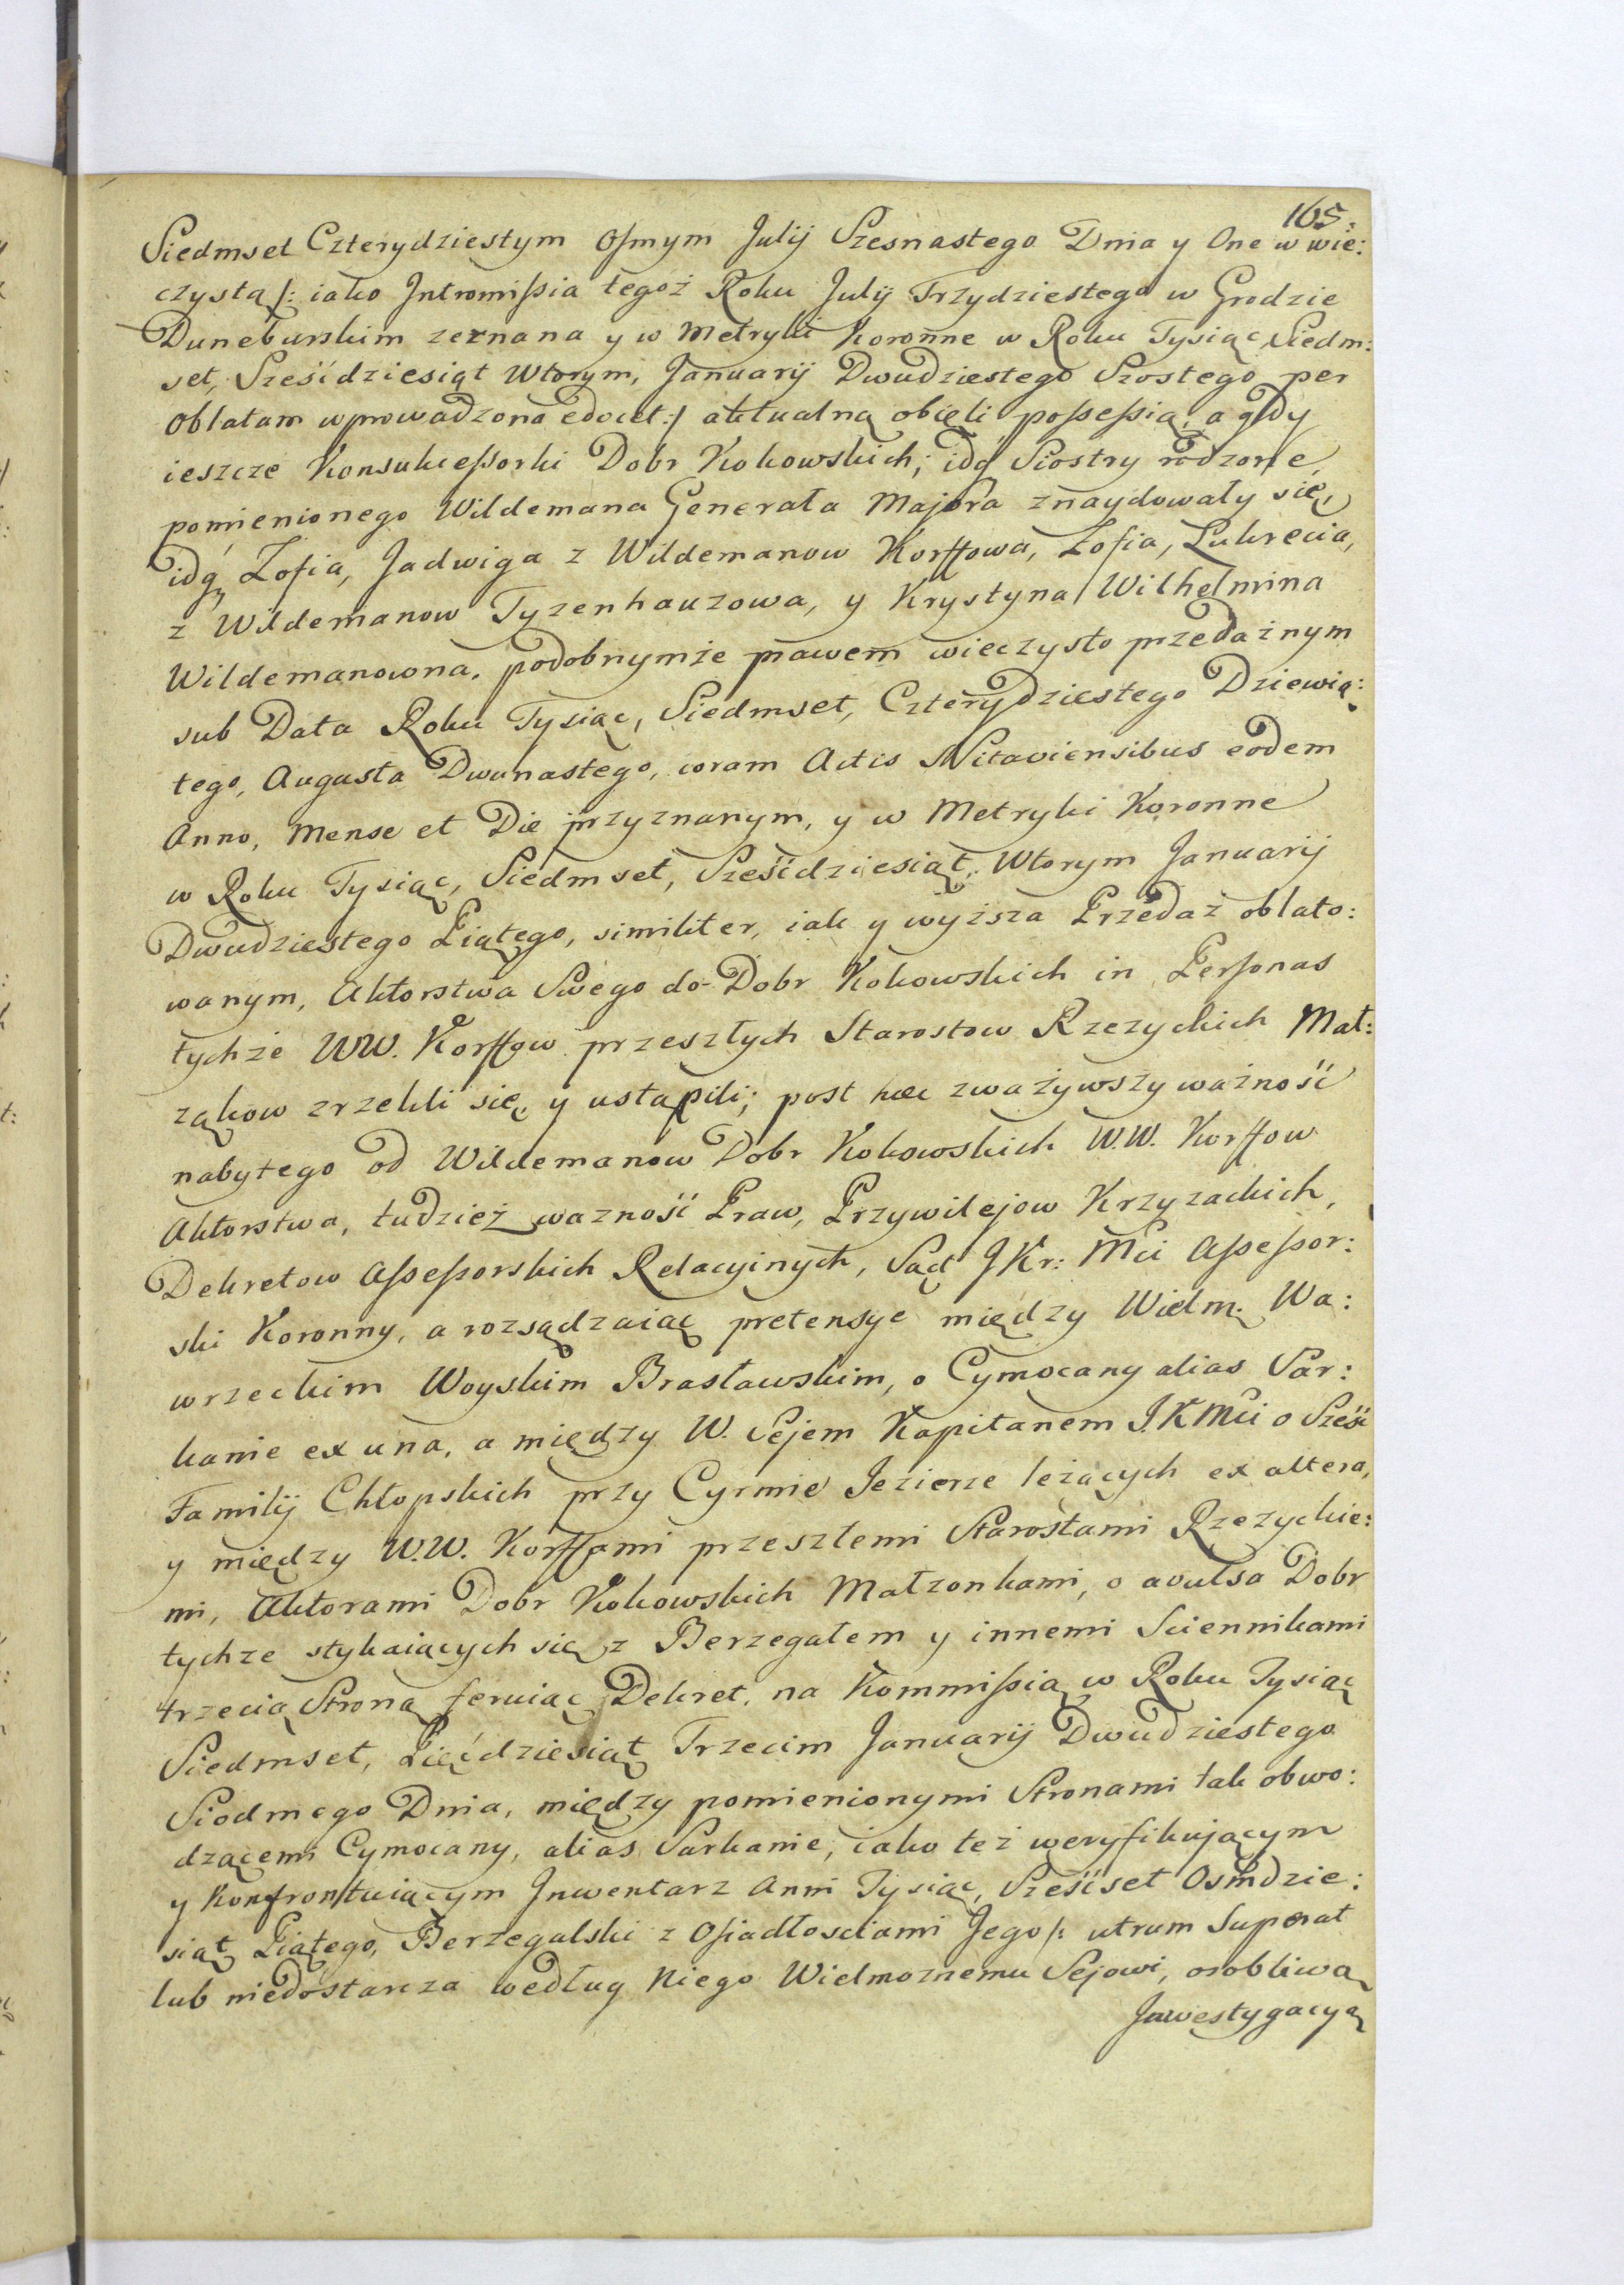 165.
Siedmset Czterydziestym Osmym Julij Szesnastego Dnia y One w wie:
czystą /: iako Intromissia tegoż Roku Julij Trzydziestego w Grodzie
Duneburskim zeznana y w Metryki Koronne w Roku Tysiąc, Siedm:
set, Sześćdziesiąt Wtorym, Januarij Dwudziestego Szostego per
Oblatam wprowadzona edocet :/ aktualną obięli possessią, a gdy
ieszcze Konsukcessorki Dobr Kokowskich; idq Siostry rodzone,
pomienionego Wildemana Generała Majora znaydowały się,
idq Zofia, Jadwiga z Wildemanow Korffowa, Zofia, Lukrecia,
z Wildemanow Tyzenhauzowa, y Krystyna Wilhelmina
Wildemanowna, podobnymże prawem wieczysto przedażnym
sub Data Roku Tysiąc, Siedmset, Czterydziestego Dziewią:
tego, Augusta Dwunastego, coram Actis Mitaviensibus eodem
Anno, Mense et Die przyznanym, y w Metryki Koronne
w Roku Tysiąc, Siedmset, Sześćdziesiąt, Wtorym Januarij
Dwudziestego Piątego, similiter, iak y wyższa Przedaż oblato:
wanym, Aktorstwa Swego do Dobr Kokowskich in Personas
tychże WW. Korffow przeszłych Starostow Rzezyckich Mał:
ząkow zrzekli się, y ustąpili; post hæc zważywszy ważność
nabytego od Wildemanow Dobr Kokowskich W.W. Korffow
Aktorstwa, tudzież ważność Praw, Przywilejow Krzyzackich,
Dekretow Assessorskich Relacyinych, Sąd JKr: Mci Assessor:
ski Koronny, a rozsądzaiąc pretensye między Wielm. Wa:
wrzeckim Woyskim Brasławskim, o Cymocany alias Sar:
kanie ex una, a między W. Sejem Kapitanem J.K Mci o Sześć
Familij Chłopskich przy Cyrmie Jezierze leżących ex altera,
y między W.W. Korffami przeszłemi Starostami Rzezyckie:
mi, Aktorami Dobr Kokowskich Małzonkami, o avulsa Dobr
tychze stykaiących się z Berzegałem y innemi Sciennikami
trzecią Stroną feruiąc Dekret, na Kommissią w Roku Tysiąc
Siedmset, Pięćdziesiąt Trzecim Januarij Dwudziestego
Siodmego Dnia, między pomienionymi Stronami tak obwo:
dzącemi Cymocany, alias Sarkanie, iako też weryfikującym
y Konfrontuiącym Inwentarz Anni Tysiąc, Sześćset Osmdzie:
siąt Piątego, Berzegalski z Osiadłosciami Jego /: utrum Superat
lub niedostarcza według Niego Wielmoznemu Sejowi, osobliwą
Inwestygacyą